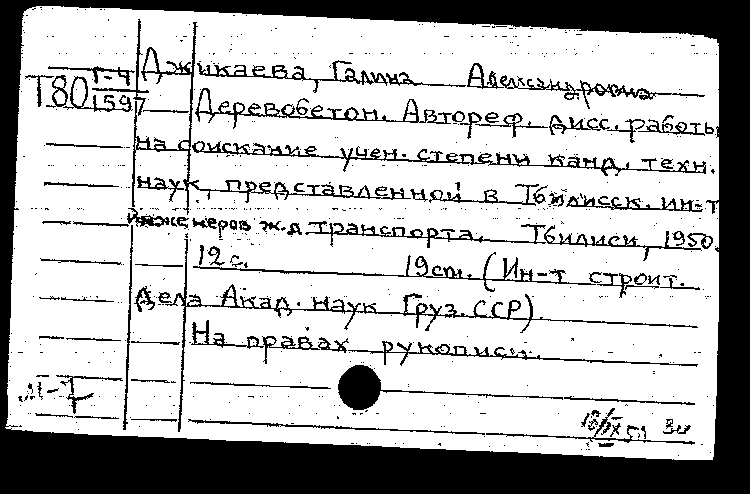 Джикаева, Галина Александровна
Т80 Г-4
1597
Деревобетон. Автореф. дисс. работы
на соискание учен. степени канд. техн.
наук, представленной в Тбилисск. ин-т
инженеров ж.д. транспорта. Тбилиси, 1950.
12 с. 19 cm. (Ин-т строит.
дела Акад. наук Груз. ССР).
На правах рукописи.
М-7